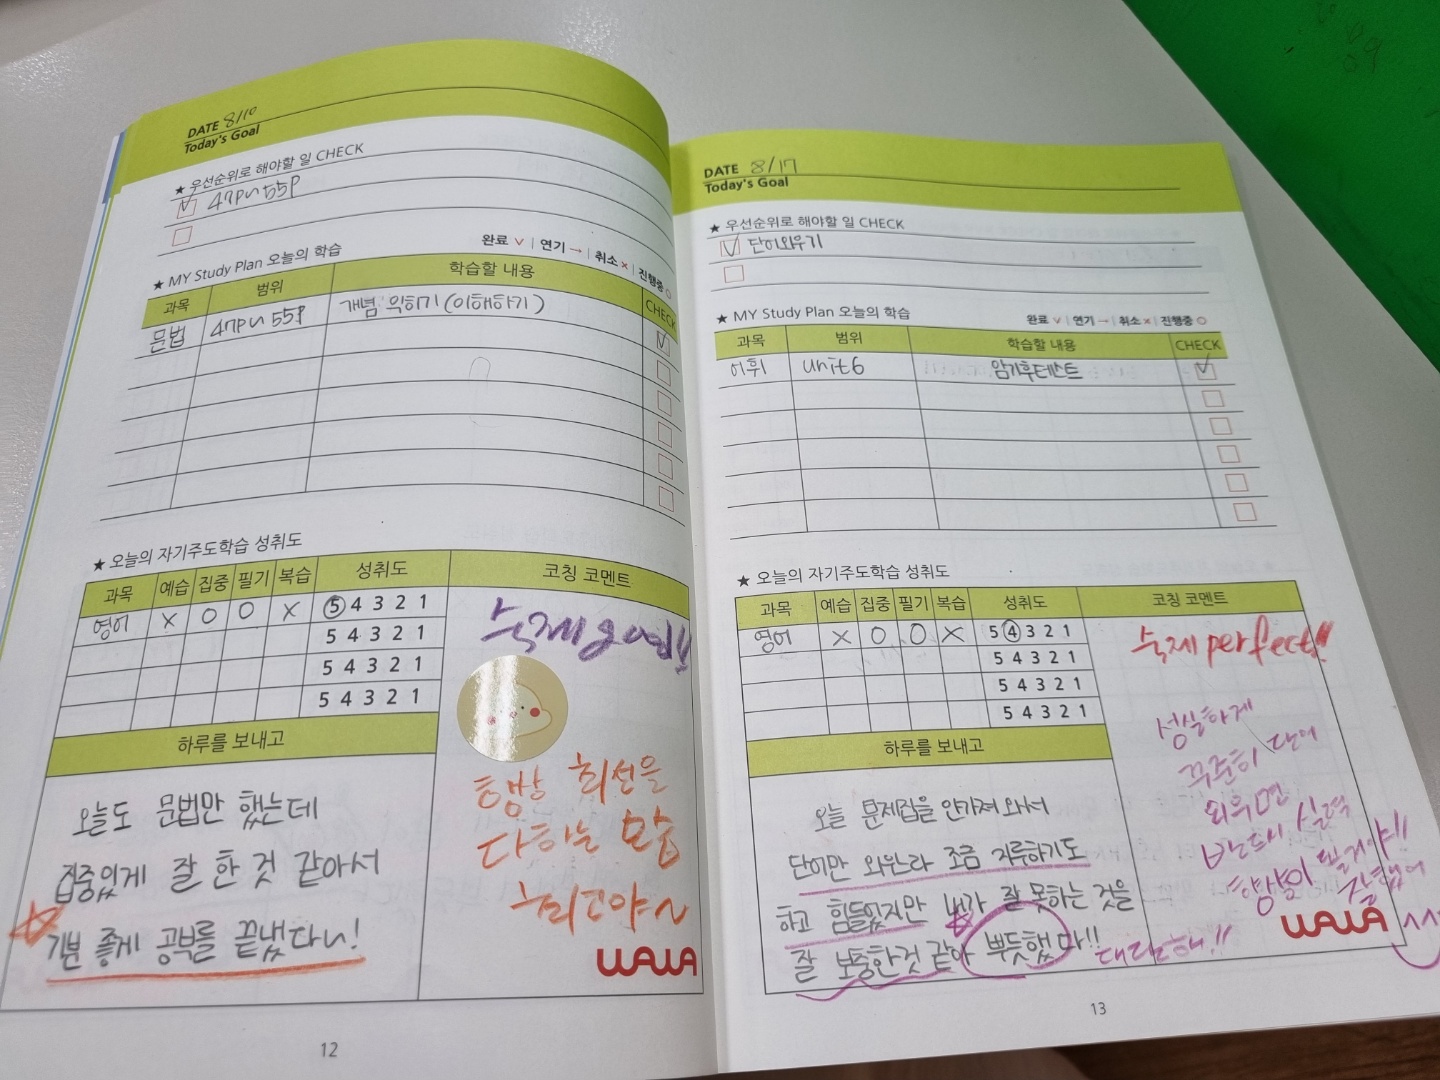 DATE 8/10
Today's Goal
★ 우선순위로 해야할 일 CHECK
47p~55p
★ MY Study Plan 오늘의 학습
완료 ∨ | 연기 → | 취소 × | 진행중 ○
과목 범위 학습할 내용 CHECK
문법 47p~55p 개념 익히기(이해하기)
★ 오늘의 자기주도학습 성취도
과목 예습 집중 필기 복습 성취도
영어 X O O X 5 4 3 2 1
5 4 3 2 1
5 4 3 2 1
5 4 3 2 1
코칭 코멘트
항상 최선을
다하는 모습
최고야~
하루를 보내고
오늘도 문법만 했는데
집중있게 잘 한 것 같아서
기분 좋게 공부를 끝냈다니!
WAWA
12
DATE 8/17
Today's Goal
★ 우선순위로 해야할 일 CHECK
단어외우기
★ MY Study Plan 오늘의 학습
완료 ∨ | 연기 → | 취소 × | 진행중 ○
과목 범위 학습할 내용 CHECK
어휘 unit6 암기후테스트
★ 오늘의 자기주도학습 성취도
과목 예습 집중 필기 복습 성취도
영어 X O O X 5 4 3 2 1
5 4 3 2 1
5 4 3 2 1
5 4 3 2 1
코칭 코멘트
숙제 perfect!!
성실하게
꾸준히 단어
외우면
반드시 실력
향상이 될거야!!
잘했어
하루를 보내고
오늘 문제집을 안가져 와서
단어만 외운라 조금 지루하기도
하고 힘들었지만 내가 잘 못하는 것을
잘 보충한것 같아 뿌듯했다!!
대단해!!
WAWA
^^
13